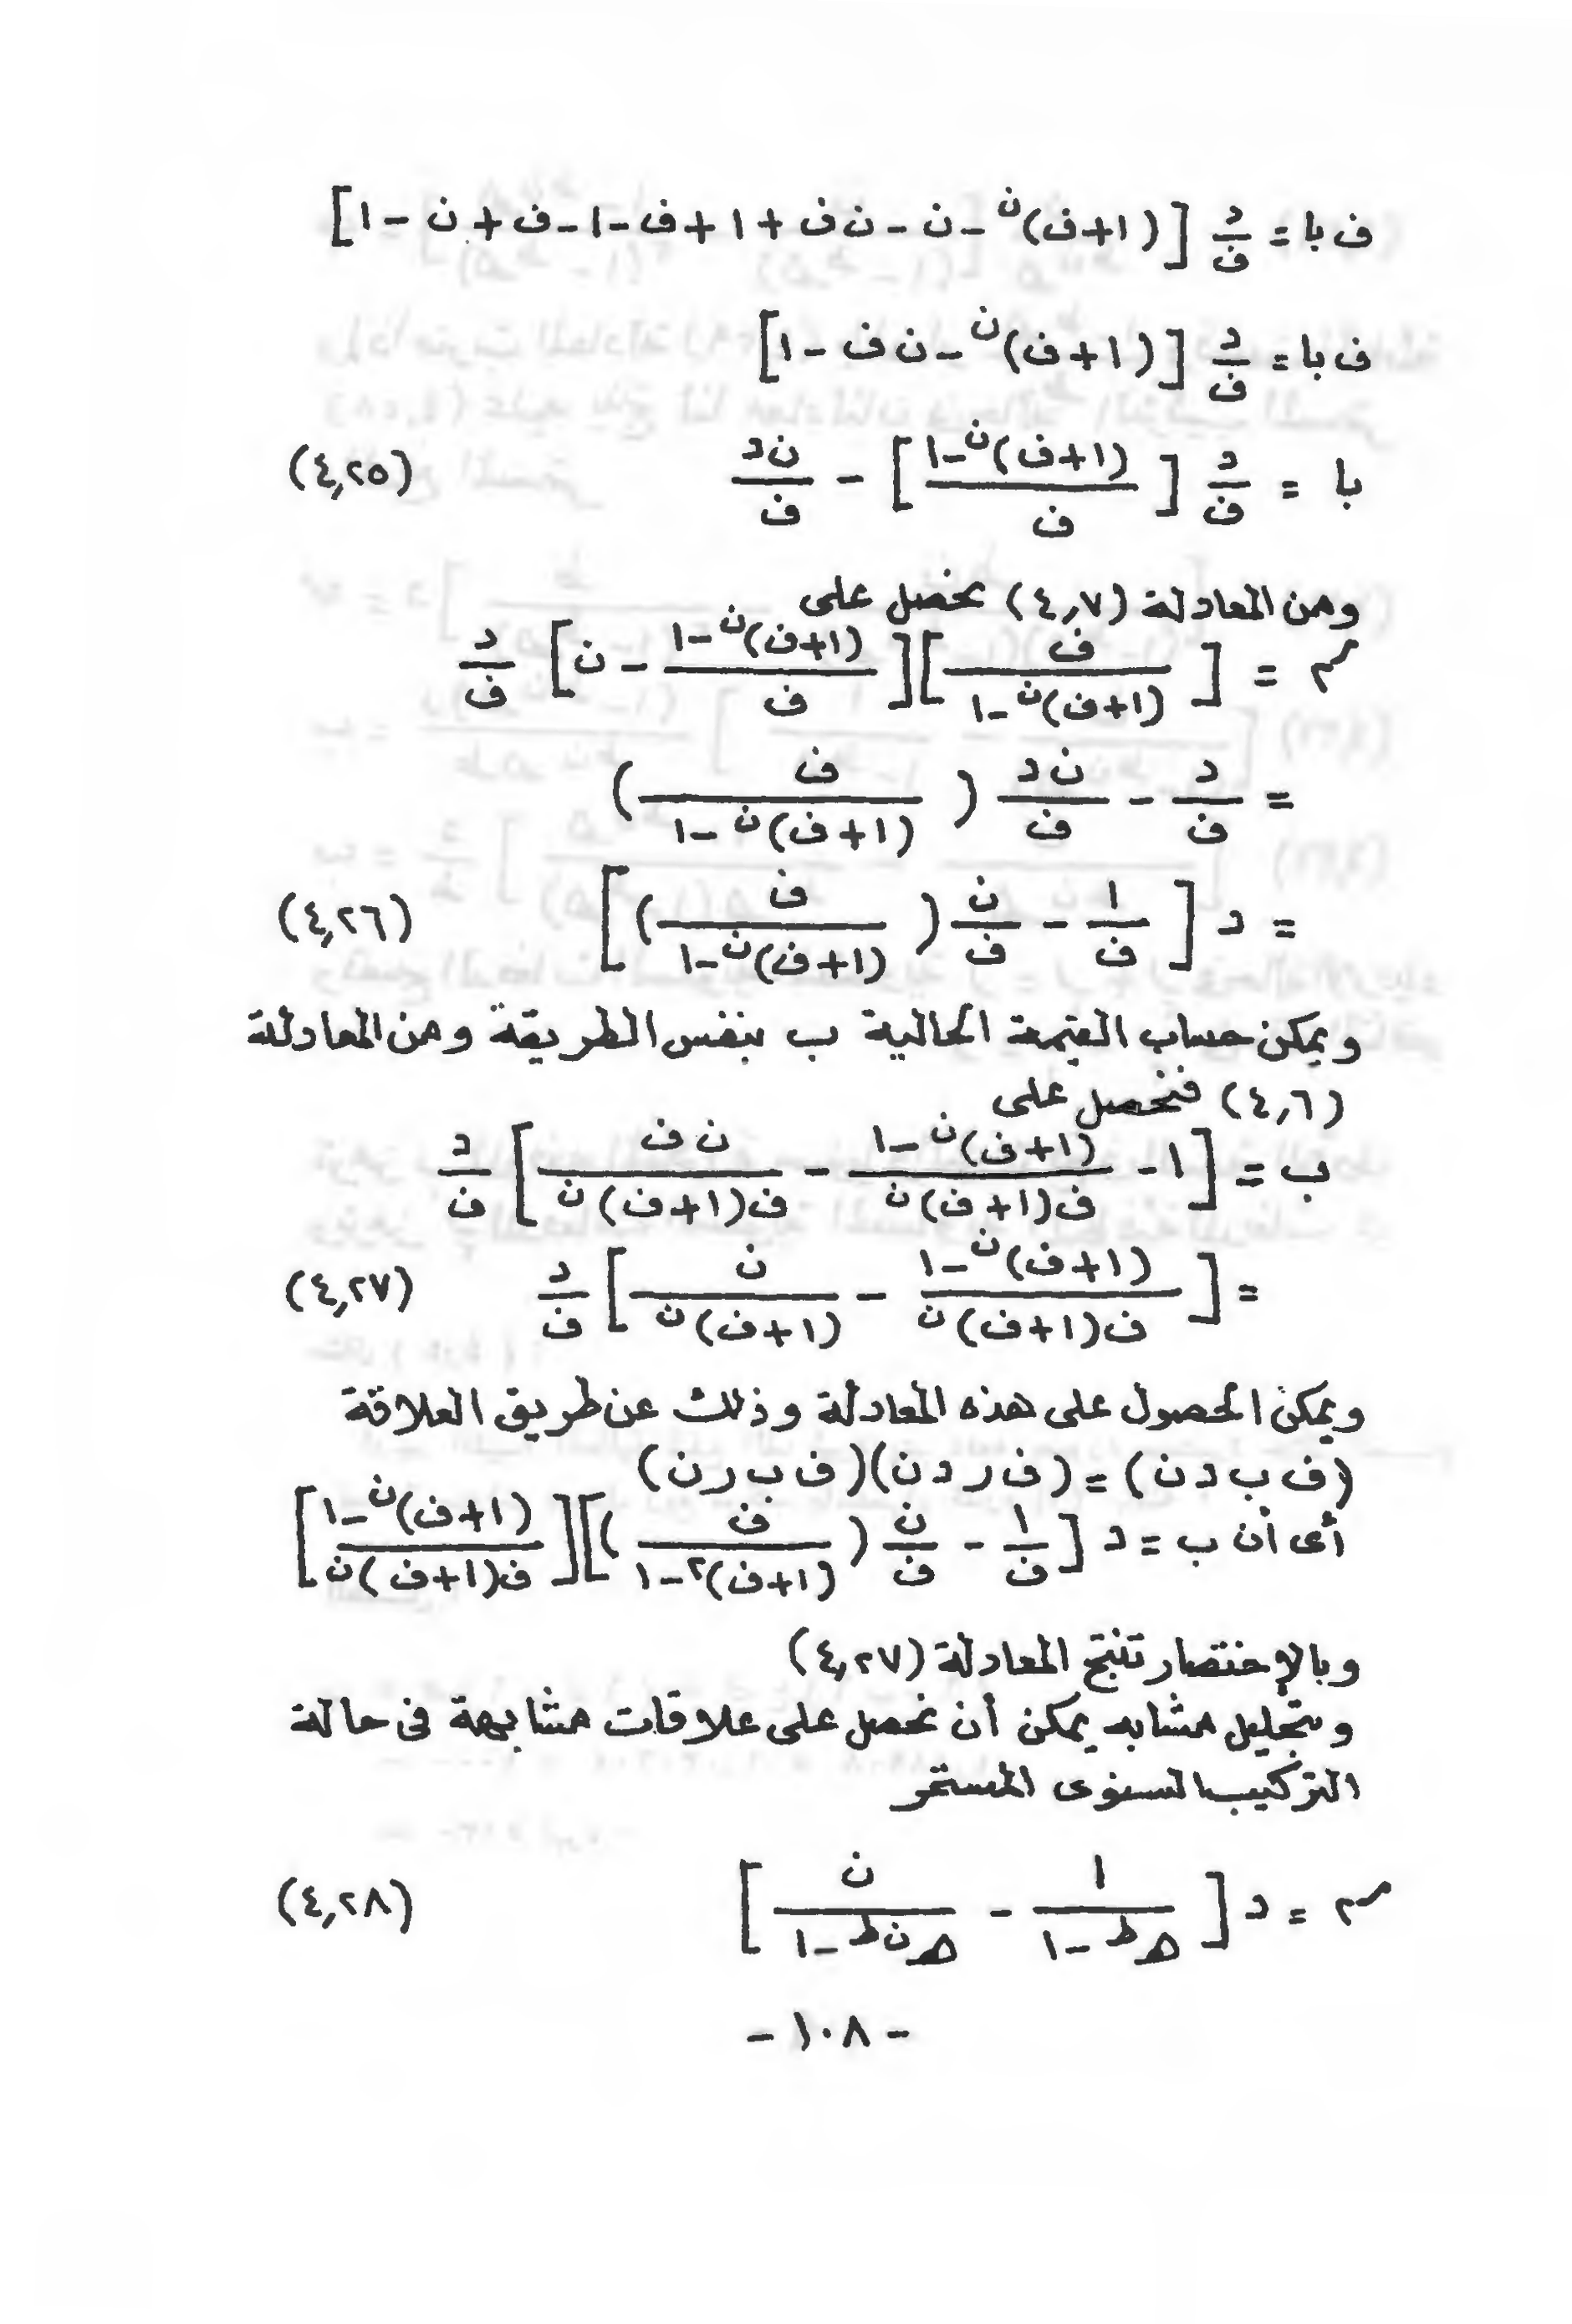 ف با = د/ف [(١+ف)^ن - ن - ن ف + ١ + ف - ١ - ف + ن - ١]
ف با = د/ف [(١+ف)^ن - ن ف - ١]
با = د/ف [((١+ف)^ن - ١)/ف] - ن د/ف (٤,٢٥)
ومن المعادلة (٤,٧) نحصل على
سم = [ف/((١+ف)^ن - ١)][((١+ف)^ن - ١)/ف - ن] د/ف
= د/ف - ن د/ف (ف/((١+ف)^ن - ١))
= د [١/ف - ن/ف (ف/((١+ف)^ن - ١))] (٤,٢٦)
ويمكن حساب القيمة الحالية ب بنفس الطريقة ومن المعادلة
(٤,٦) فنحصل على
ب = [١ - ((١+ف)^ن - ١)/(ف(١+ف)^ن) - ن ف/(ف(١+ف)^ن)] د/ف
= [((١+ف)^ن - ١)/(ف(١+ف)^ن) - ن/((١+ف)^ن)] د/ف (٤,٢٧)
ويمكن الحصول على هذه المعادلة وذلك عن طريق العلاقة
(ف ب د ن) = (ف ر د ن)(ف ب ر ن)
أى أن ب = د [١/ف - ن/ف (ف/((١+ف)^٢ - ١))][((١+ف)^ن - ١)/(ف(١+ف)^ن)]
وبالإختصار تنتج المعادلة (٤,٢٧)
وبتحليل مشابه يمكن أن نحصل على علاقات مشابهة فى حالة
التركيب السنوى المستمر
سم = د [١/(هـ^ط - ١) - ن/(هـ^ن ط - ١)] (٤,٢٨)
- ١٠٨ -